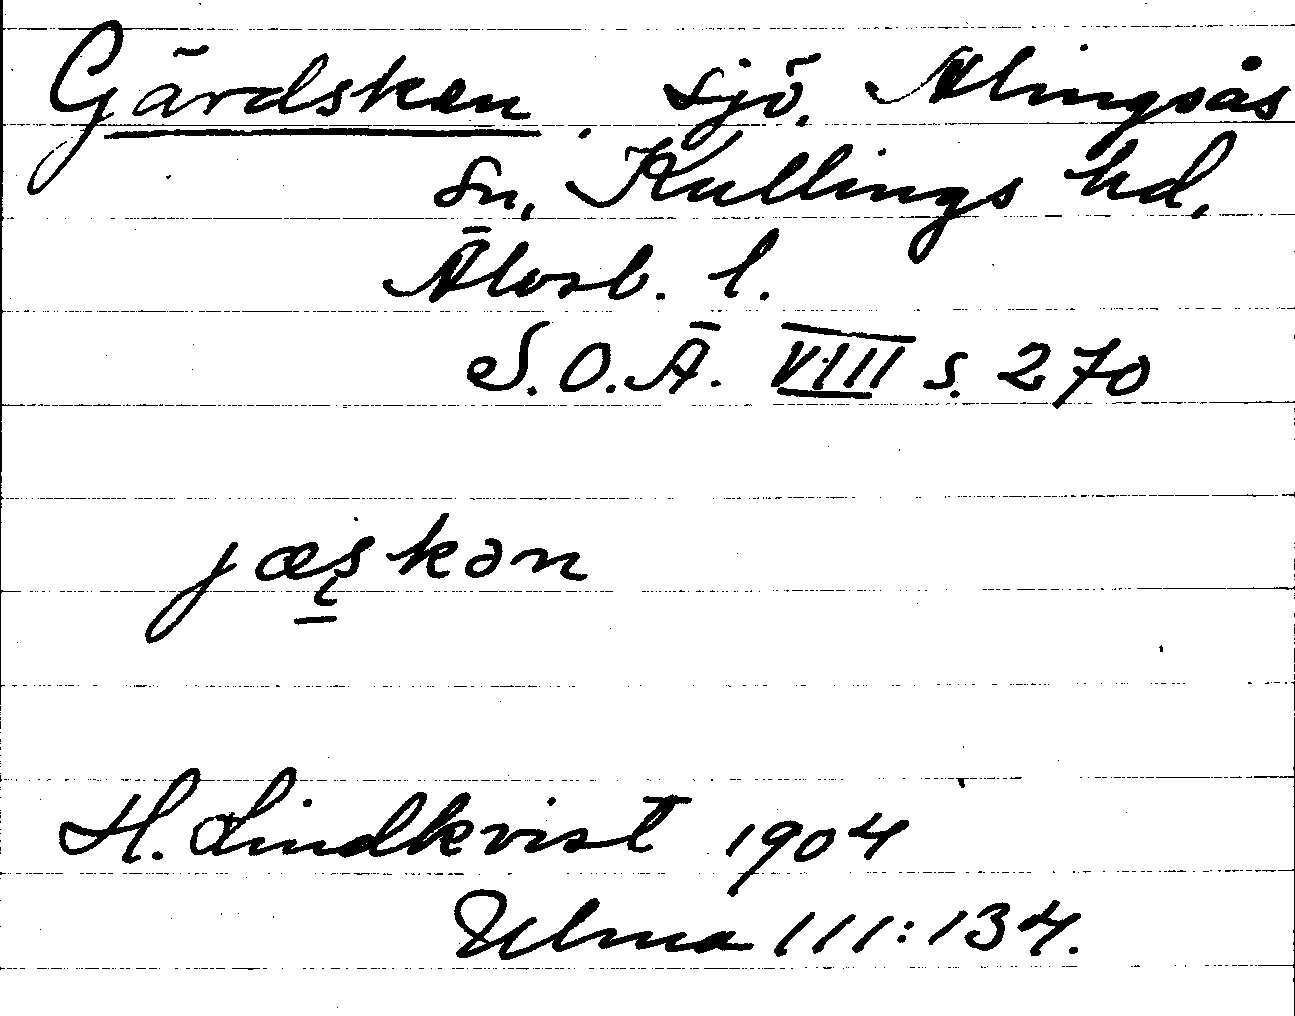 Gärdsken. sjö. Alingsås
sn, Kullings hd,
Älvsb. l.
S.O.Ä. VIII s. 270
jæskən
H. Lindkvist 1904
Ulma 111:134.